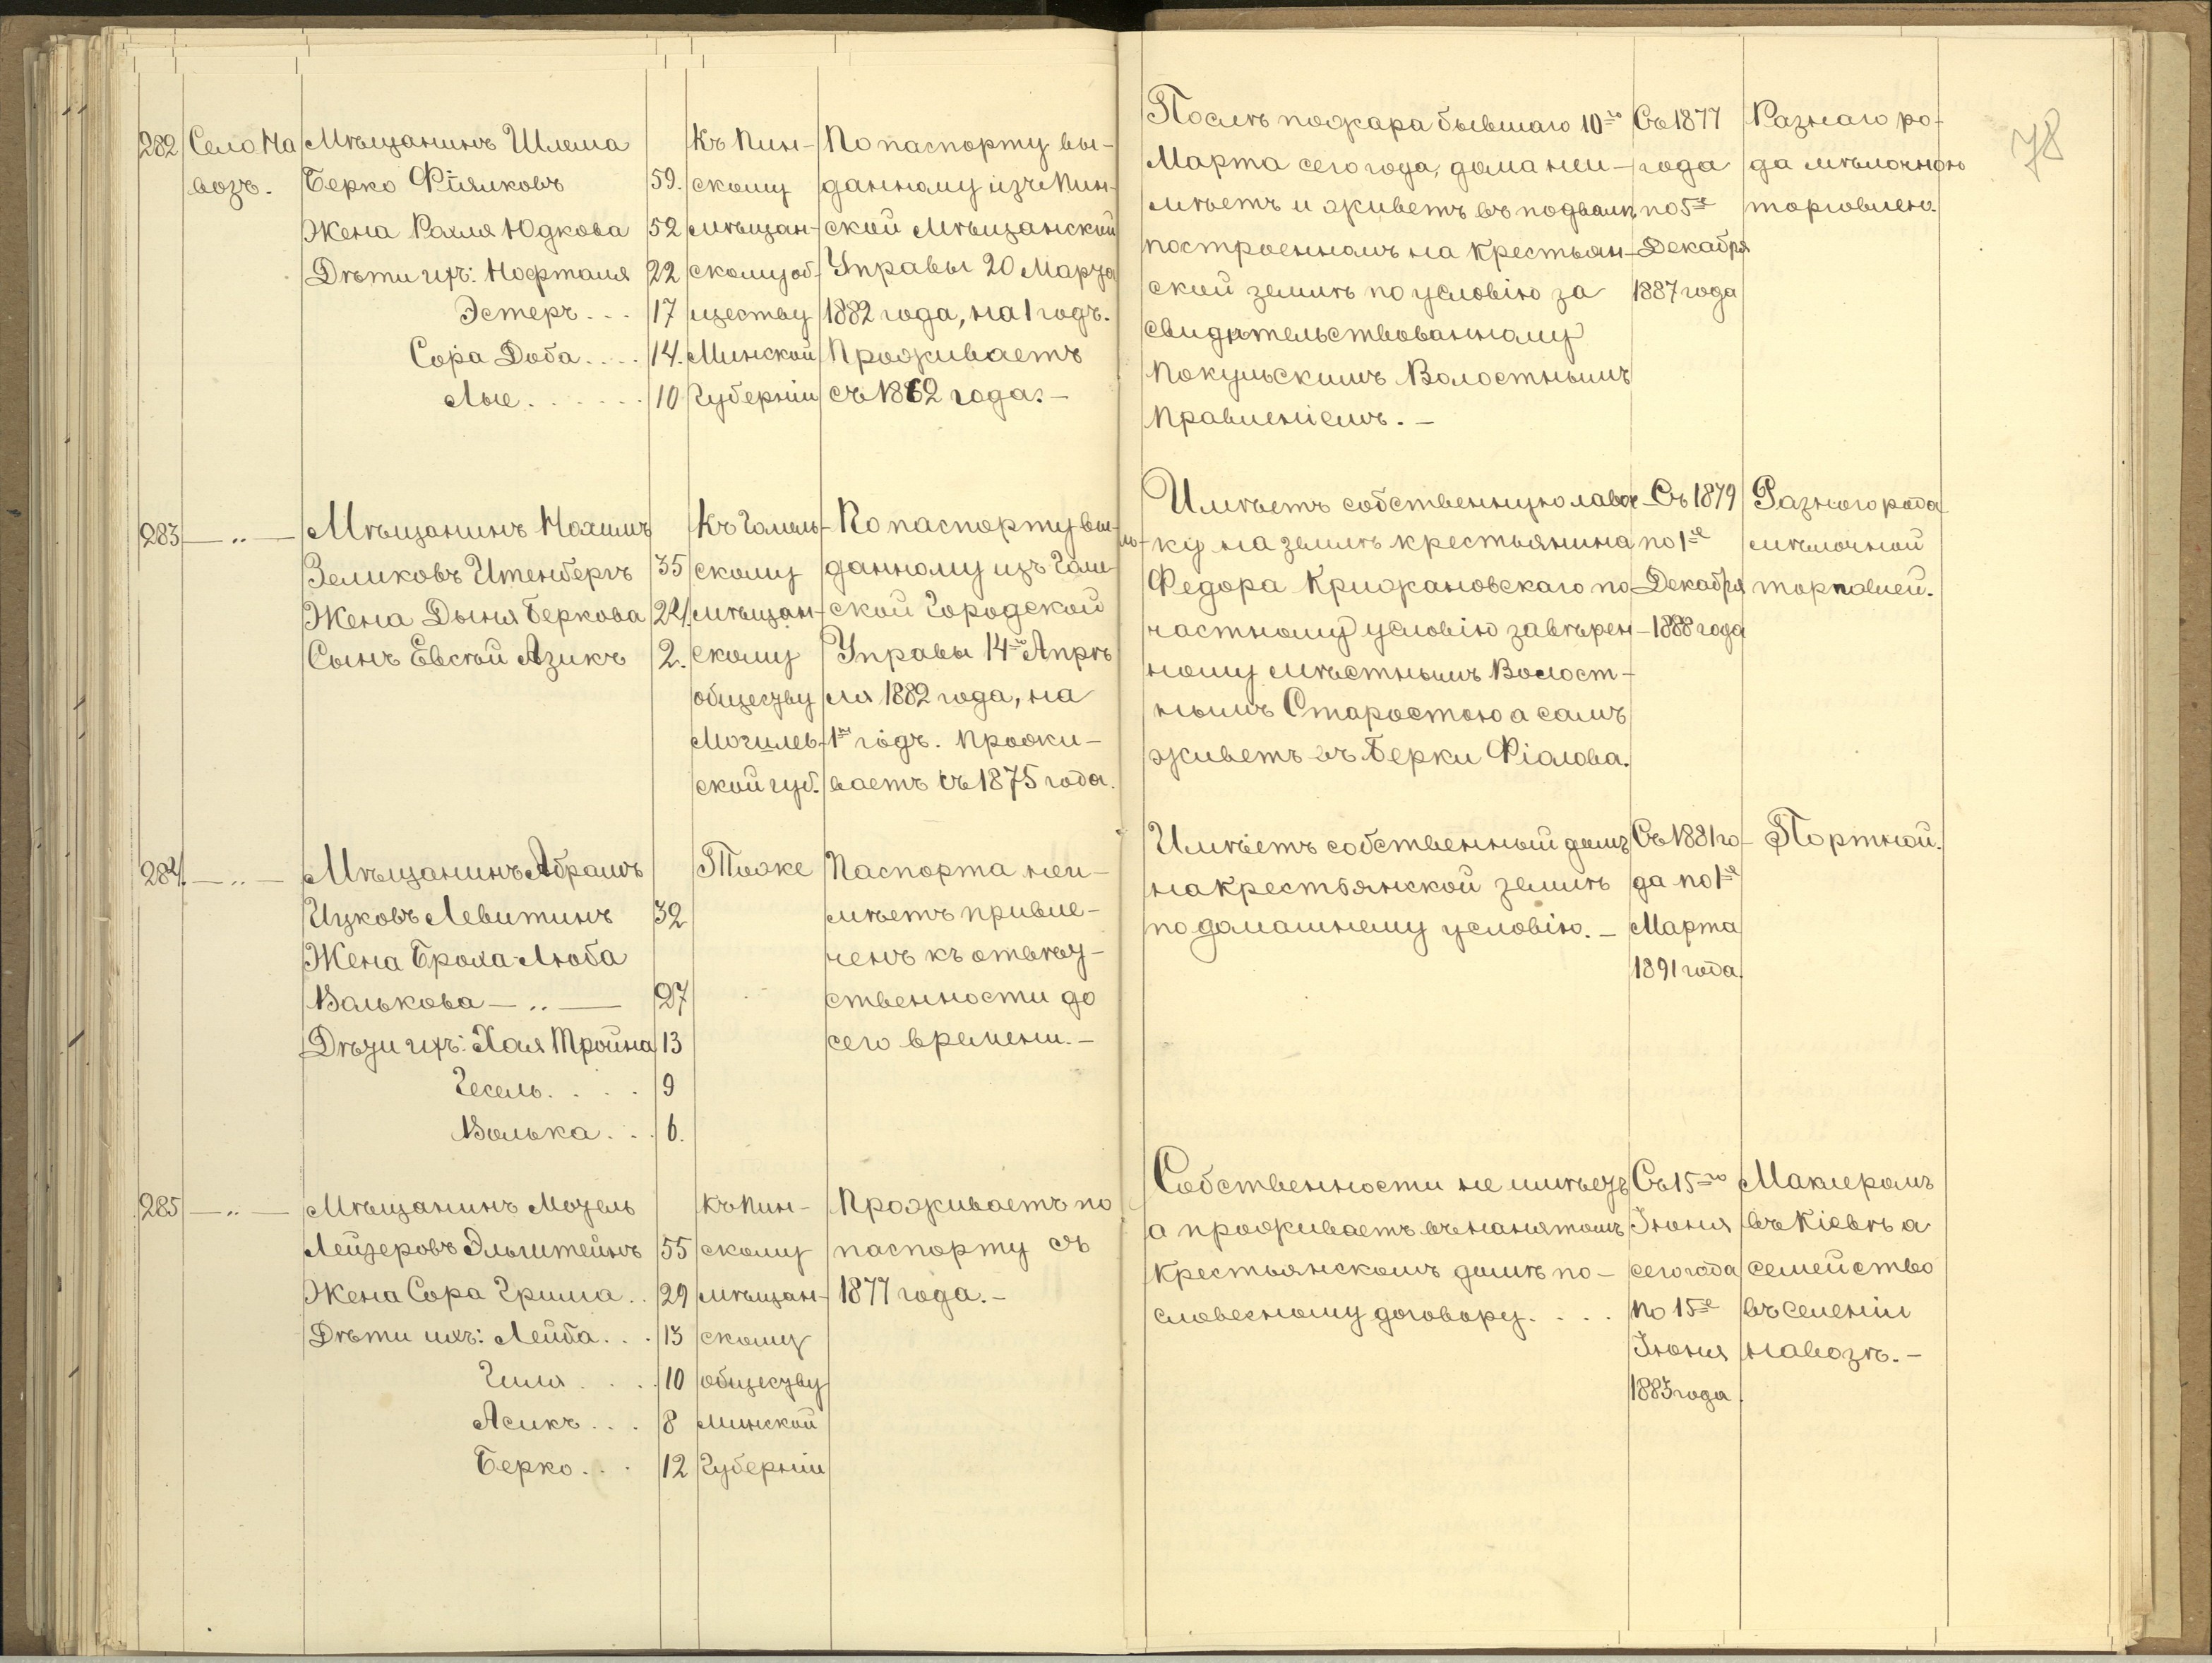 78
282
Село На
возъ.
Мѣщанинъ Шлема
Берко Фіялковъ 59.
Жена Рахля Юдкова 52
Дѣти ихъ: Нофталя 22
Эстеръ... 17
Сора Доба.... 14.
Лые...... 10
Къ Пин-
скому
мѣщан-
скому об-
ществу
Минской
Губерніи
По паспорту вы-
данному изъ Пин-
ской Мѣщанской
Управы 20 Марта
1882 года, на 1 годъ.
Проживаетъ
съ 1862 года.-
Послѣ пожара бывшаго 10го
Марта сего года, дома неи-
мѣетъ и живетъ въ подвалѣ
построенномъ на крестьян-
ской землѣ по условію за
свидѣтельствованному
Покульскимъ Волостнымъ
Правленіемъ.-
Съ 1877
года
по 5е
Декабря
1887 года
Разнаго ро-
да мѣлочною
торговлею.
283
—..—
Мѣщанинъ Нохимъ
Зеликовъ Итенбергъ 35
Жена Дыня Беркова 24.
Сынъ Евсѣй Азикъ 2.
Къ Гомель-
скому
мѣщан-
скому
обществу
Могилев-
ской губ.
По паспорту вы-
данному изъ Гомель-
ской Городской
Управы 14го Апрѣ
ля 1882 года, на
1нъ годъ. Прожи-
ваетъ съ 1875 года.
Имѣетъ собственную лавоч-
ку на землѣ крестьянина
Федора Крижановскаго по
частному условію завѣрен-
ному мѣстнымъ Волост-
нымъ Старостою а самъ
живетъ въ Берки Фіалова.
Съ 1879
по 1е
Декабря
1888 года
Разного рода
мѣлочной
торговлей.
284.
—..—
Мѣщанинъ Абрамъ
Ицковъ Левитинъ 32
Жена Броха-Люба
Валькова —..— 27
Дѣти ихъ: Хая Тройна 13
Гесель.... 9
Волька... 6.
Тоже
Паспорта неи-
мѣетъ привле-
ченъ къ отвѣт-
ственности до
сего времени.-
Имѣетъ собственный домъ
на крестьянской землѣ
по домашнему условію.-
Съ 1881 го-
да по 1е
Марта
1891 года.
Портной.
285
—..—
Мѣщанинъ Мотель
Лейзеровъ Эльштейнъ 55
Жена Сора Грима.. 29
Дѣти ихъ: Лейба... 13
Гиля.... 10
Асикъ... 8
Берко... 12
Къ Пин-
скому
мѣщан-
скому
обществу
Минской
Губерніи
Проживаетъ по
паспорту съ
1877 года.-
Собственности не имѣетъ
а проживаетъ въ нанятомъ
крестьянскомъ домѣ по-
словесному договору....
Съ 15го
Іюня
сего года
по 15е
Іюня
1883 года.
Маклеромъ
въ Кіевѣ а
семейство
въ селеніи
Навозѣ.-